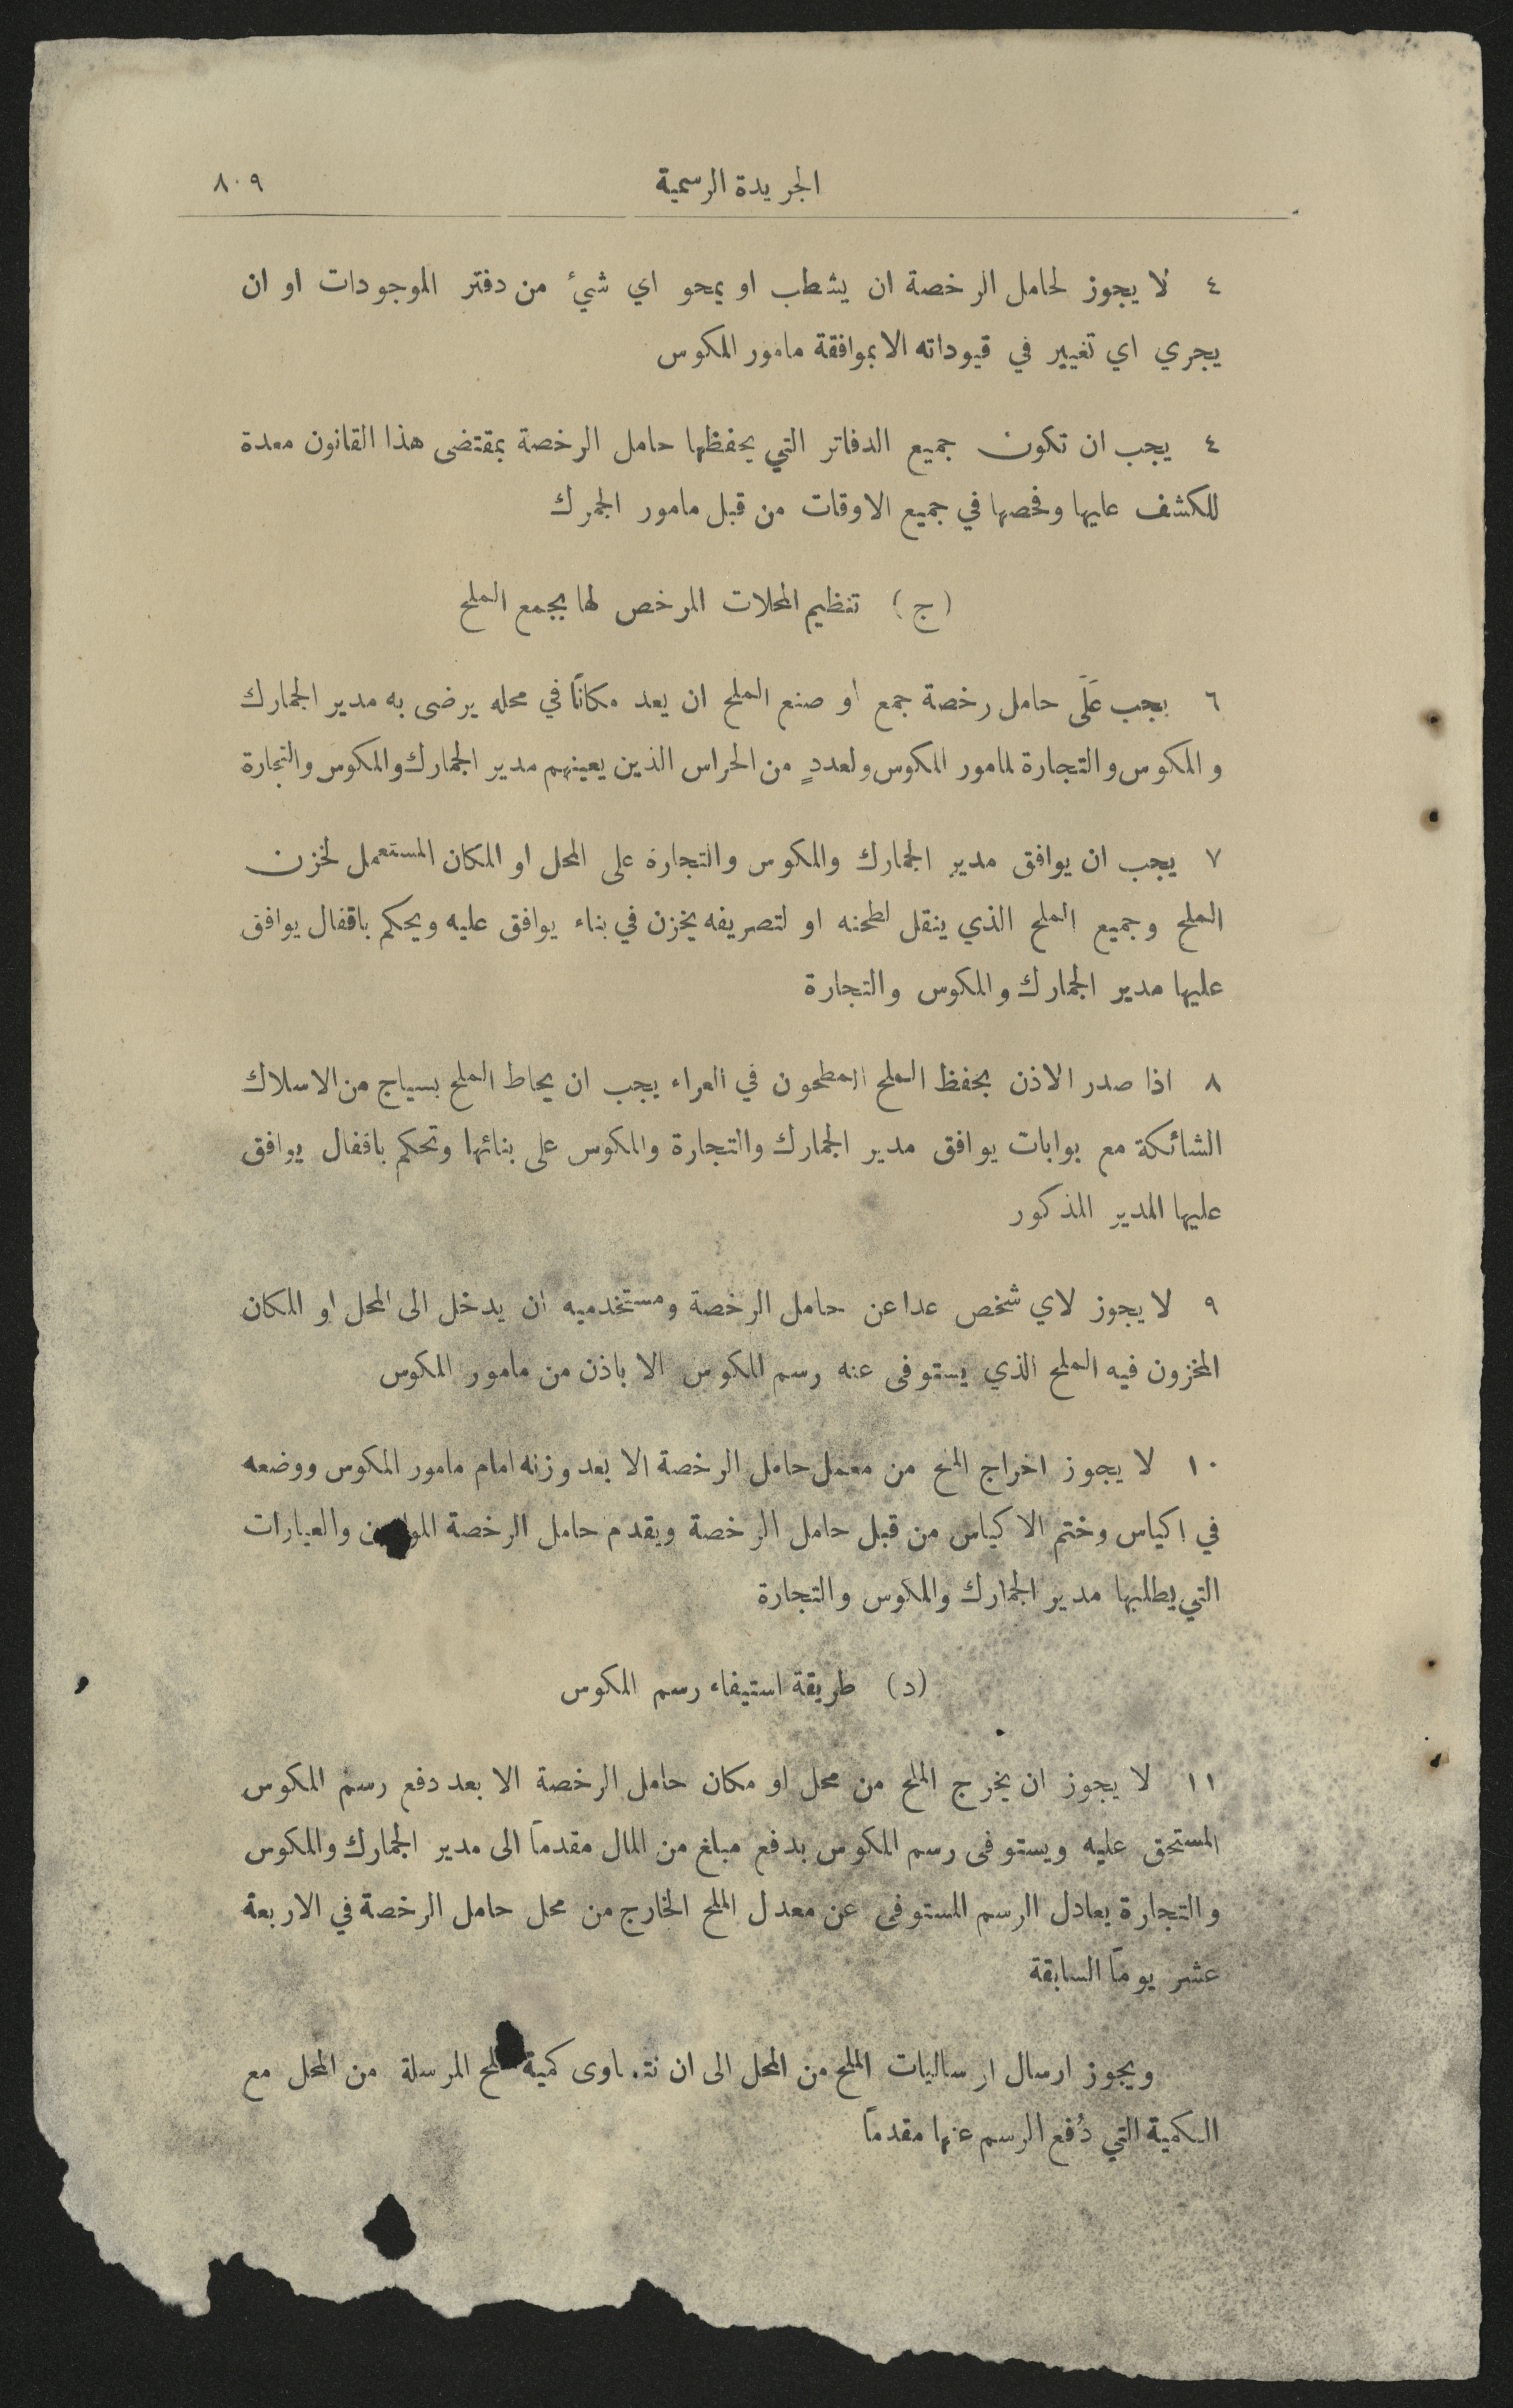 الجريدة الرسمية ٨٠٩
٤ لا يجوز لحامل الرخصة ان يشطب او يمحو اي شيء من دفتر الموجودات او ان
يجري اي تغيير في قيوداته الا بموافقة مامور المكوس
٤ يجب ان تكون جميع الدفاتر التي يحفظها حامل الرخصة بمقتضى هذا القانون معدة
للكشف عليها وفحصها في جميع الاوقات من قبل مامور الجمرك
(ج) تنظيم المحلات المرخص لها بجمع الملح
٦ يجب عَلَى حامل رخصة جمع او صنع الملح ان يعد مكاناً في محله يرضى به مدير الجمارك
والمكوس والتجارة لمامور المكوس ولعددٍ من الحراس الذين يعينهم مدير الجمارك والمكوس والتجارة
٧ يجب ان يوافق مدير الجمارك والمكوس والتجارة على المحل او المكان المستعمل لخزن
الملح وجميع الملح الذي ينقل لطحنه او لتصريفه يخزن في بناء يوافق عليه ويحكم باقفال يوافق
عليها مدير الجمارك والمكوس والتجارة
٨ اذا صدر الاذن بحفظ الملح المطحون في العراء يجب ان يحاط الملح بسياج من الاسلاك
الشائكة مع بوابات يوافق مدير الجمارك والتجارة والمكوس على بنائها وتحكم باقفال يوافق
عليها المدير المذكور
٩ لا يجوز لاي شخص عدا عن حامل الرخصة ومستخدميه ان يدخل الى المحل او المكان
المخزون فيه الملح الذي يستوفى عنه رسم المكوس الا باذن من مامور المكوس
١٠ لا يجوز اخراج الملح من معمل حامل الرخصة الا بعد وزنه امام مامور المكوس ووضعه
في اكياس وختم الاكياس من قبل حامل الرخصة ويقدم حامل الرخصة والعيارات
التي يطلبها مدير الجمارك والمكوس والتجارة
(د) طريقة استيفاء رسم المكوس
١١ لا يجوز ان يخرج الملح من محل او مكان حامل الرخصة الا بعد دفع رسم المكوس
المستحق عليه ويستوفى رسم المكوس بدفع مبلغ من المال مقدماً الى مدير الجمارك والمكوس
والتجارة يعادل الرسم المستوفى عن معدل الملح الخارج من محل حامل الرخصة في الاربعة
عشر يوماً السابقة
ويجوز ارسال ارساليات الملح من المحل الى ان تتساوى كمية المرسلة من المحل مع
الكمية التي دُفع الرسم عنها مقدماً